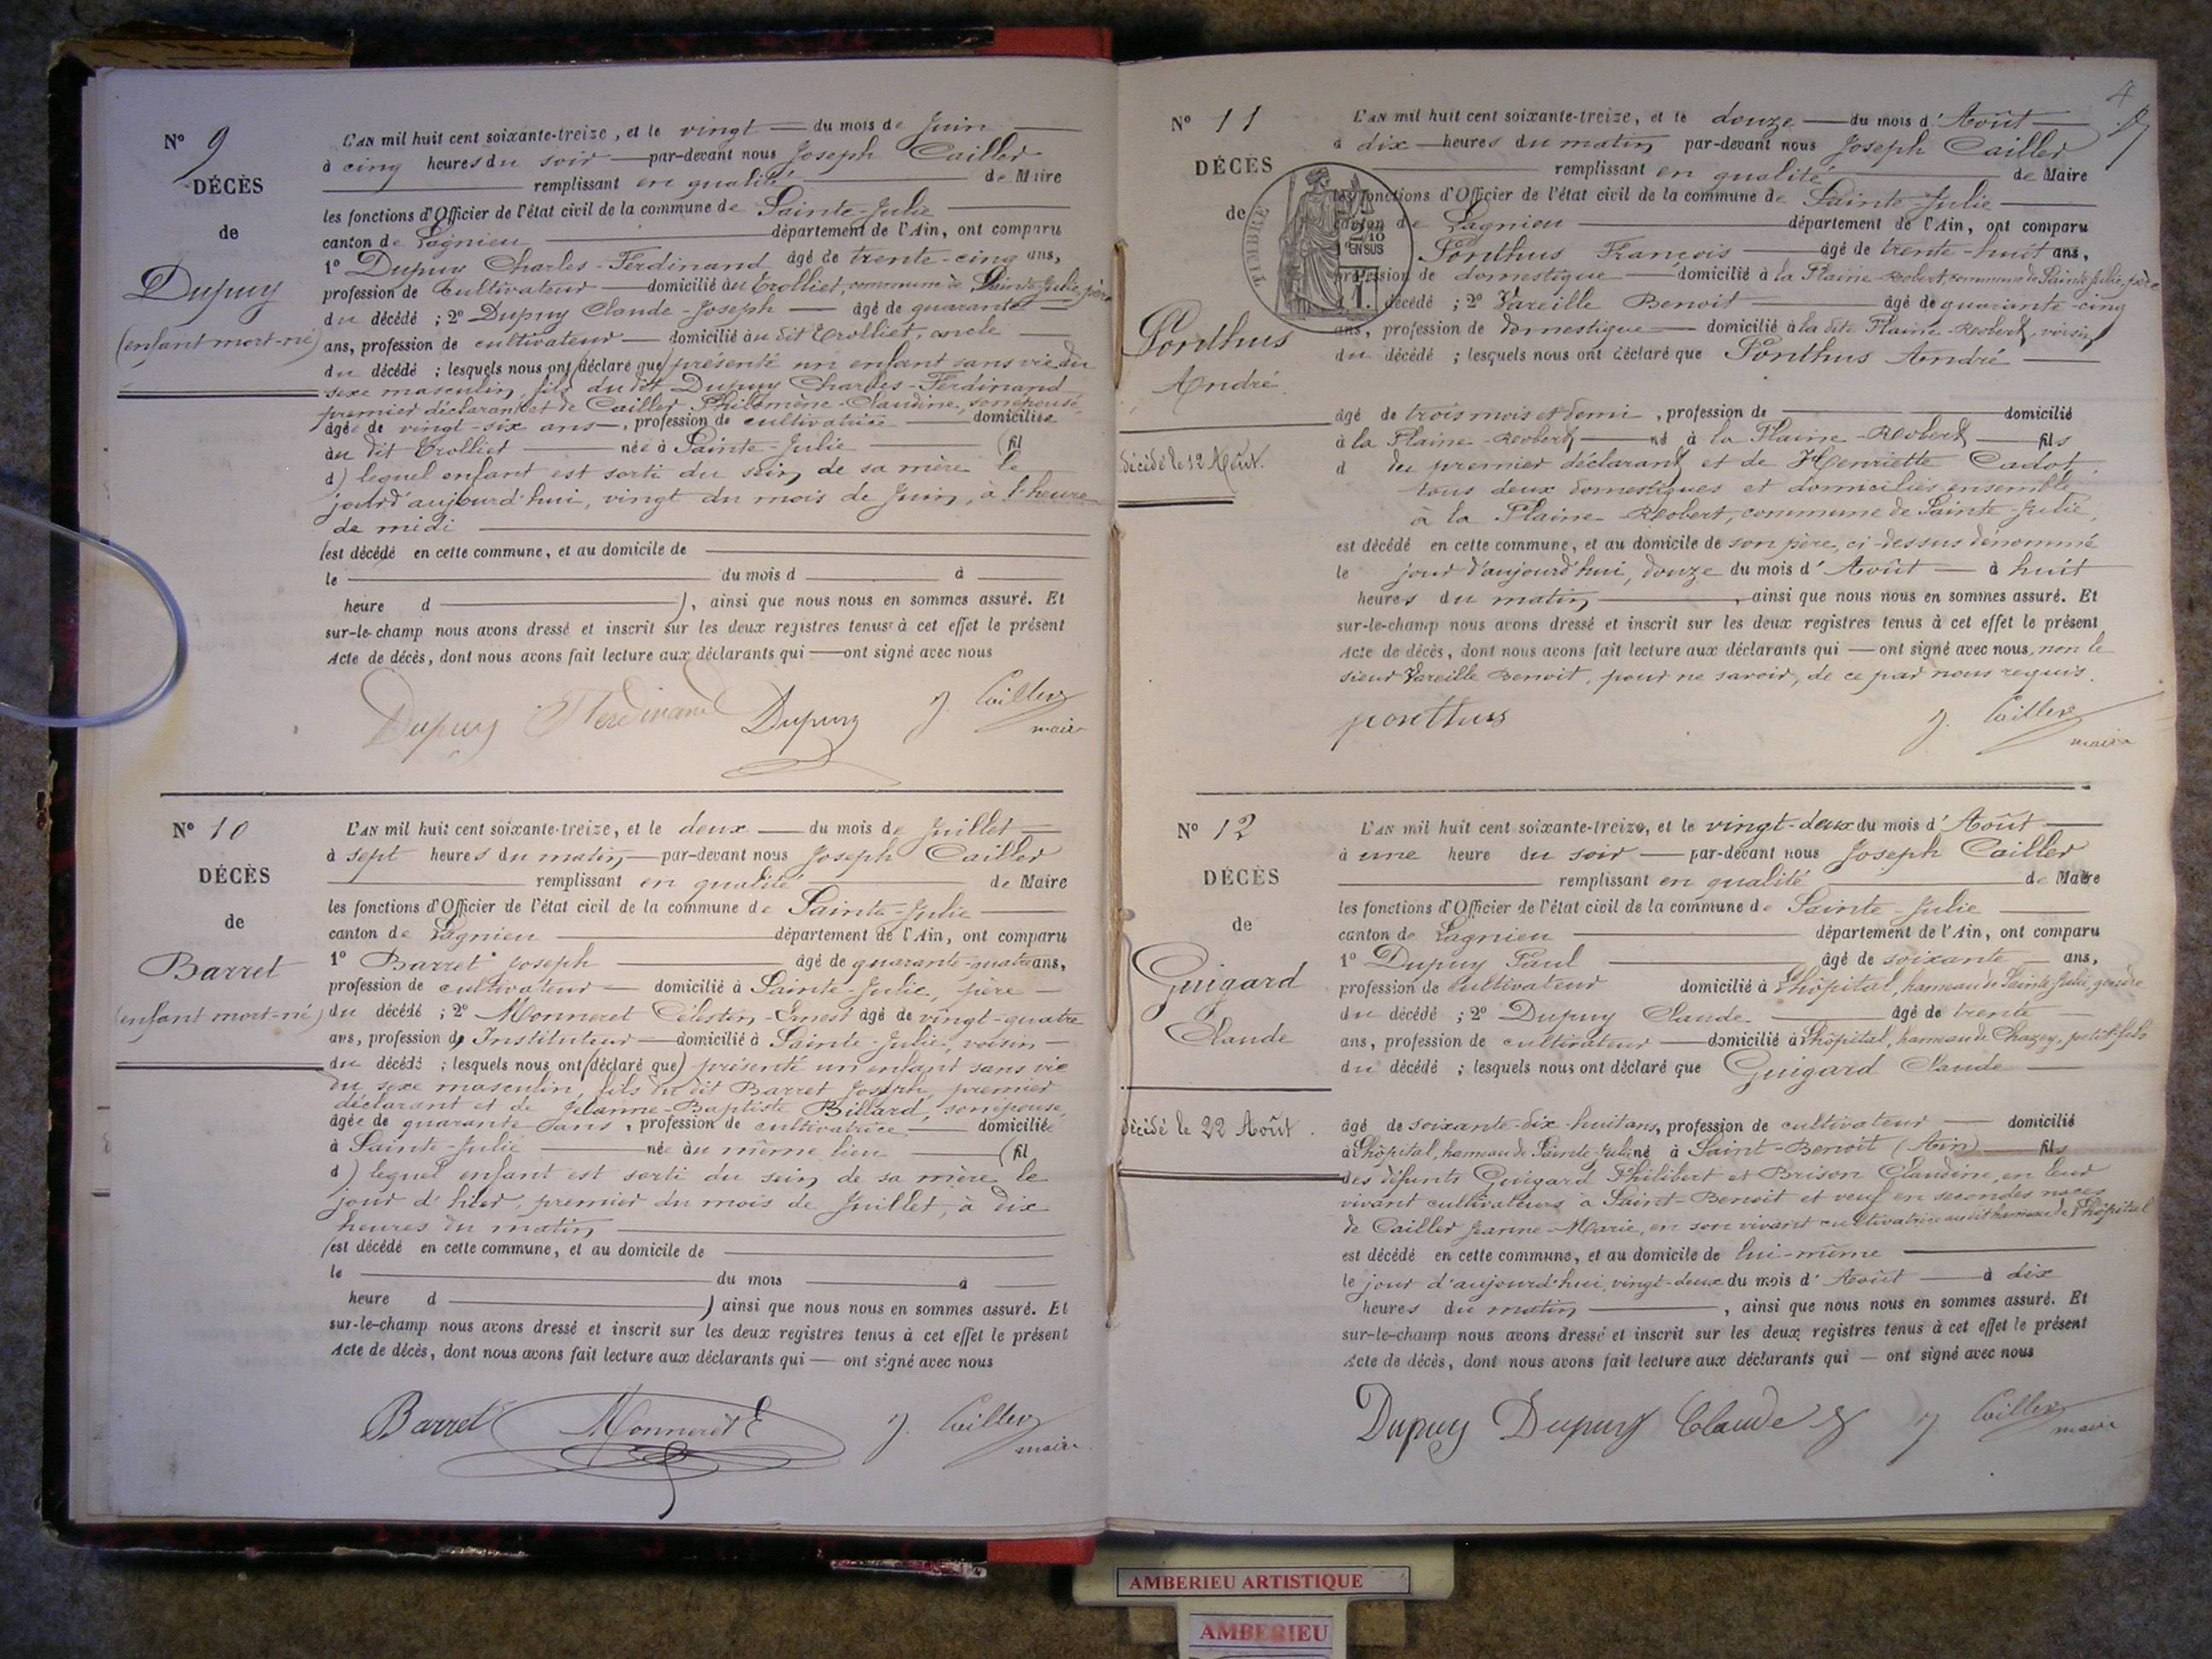 Nº 9
DÉCÈS
de
Dupuy
(enfant mort-né)
L'AN mil huit cent soixante-treize, et le vingt du mois de Juin
à cinq heures du soir par-devant nous Joseph Cailler
remplissant en qualité de Maire
les fonctions d'Officier de l'état civil de la commune de Sainte-Julie
canton de Lagnieu département de l'Ain, ont comparu
1º Dupuy Charles-Ferdinand âgé de trente-cinq ans,
profession de Cultivateur domicilié au Trolliet, commune de Sainte-Julie, père
du décédé ; 2º Dupuy Claude-Joseph âgé de quarante
ans, profession de cultivateur domicilié au dit Trolliet, oncle
du décédé ; lesquels nous ont (déclaré que) présenté un enfant sans vie du
sexe masculin, fils du dit Dupuy Charles-Ferdinand
premier déclarant et de Cailler Philomène-Claudine, son épouse,
âgée de vingt-six ans, profession de cultivatrice domiciliée
au dit Trolliet née à Sainte-Julie (fil
d) lequel enfant est sorti du sein de sa mère le
jour d'aujourd'hui, vingt du mois de Juin, à l'heure
de midi
(est décédé en cette commune, et au domicile de
le du mois d à
heure d ), ainsi que nous nous en sommes assuré. Et
sur-le-champ nous avons dressé et inscrit sur les deux registres tenus à cet effet le présent
Acte de décès, dont nous avons fait lecture aux déclarants qui ont signé avec nous
Dupuy Ferdinand Dupuy J. Cailler
maire
Nº 10
DÉCÈS
de
Barret
(enfant mort-né)
L'AN mil huit cent soixante-treize, et le deux du mois de Juillet
à sept heures du matin par-devant nous Joseph Cailler
remplissant en qualité de Maire
les fonctions d'Officier de l'état civil de la commune de Sainte-Julie
canton de Lagnieu département de l'Ain, ont comparu
1º Barret Joseph âgé de quarante-quatre ans,
profession de cultivateur domicilié à Sainte-Julie, père
du décédé ; 2º Monneret Célestin-Ernest âgé de vingt-quatre
ans, profession d'Instituteur domicilié à Sainte-Julie, voisin
du décédé ; lesquels nous ont (déclaré que) présenté un enfant sans vie
du sexe masculin, fils du dit Barret Joseph, premier
déclarant et de Jeanne-Baptiste Billard, son épouse,
âgée de quarante ans, profession de cultivatrice domiciliée
à Sainte-Julie née au même lieu (fil
d) lequel enfant est sorti du sein de sa mère le
jour d'hier, premier du mois de Juillet, à dix
heures du matin
(est décédé en cette commune, et au domicile de
le du mois à
heure d ) ainsi que nous nous en sommes assuré. Et
sur-le-champ nous avons dressé et inscrit sur les deux registres tenus à cet effet le présent
Acte de décès, dont nous avons fait lecture aux déclarants qui ont signé avec nous
Barret Monneret E J. Cailler
maire
4
Nº 11
DÉCÈS
de
Ponthus
André
décédé le 12 Août.
TIMBRE
L'AN mil huit cent soixante-treize, et le douze du mois d'Août
à dix heures du matin par-devant nous Joseph Cailler
remplissant en qualité de Maire
les fonctions d'Officier de l'état civil de la commune de Sainte-Julie
canton de Lagnieu département de l'Ain, ont comparu
1º Ponthus François âgé de trente-huit ans,
profession de domestique domicilié à la Plaine-Robert, commune de Sainte-Julie, père
du décédé ; 2º Vareille Benoit âgé de quarante-cinq
ans, profession de domestique domicilié à la dite Plaine-Robert, voisin
du décédé ; lesquels nous ont déclaré que Ponthus André
âgé de trois mois et demi, profession de domicilié
à la Plaine-Robert né à la Plaine-Robert fils
d du premier déclarant et de Henriette Cadot,
tous deux domestiques et domiciliés ensemble
à la Plaine-Robert, commune de Sainte-Julie,
est décédé en cette commune, et au domicile de son père, ci-dessus dénommé
le jour d'aujourd'hui, douze du mois d'Août à huit
heures du matin, ainsi que nous nous en sommes assuré. Et
sur-le-champ nous avons dressé et inscrit sur les deux registres tenus à cet effet le présent
Acte de décès, dont nous avons fait lecture aux déclarants qui ont signé avec nous, non le
sieur Vareille Benoit, pour ne savoir, de ce par nous requis.
ponthus J. Cailler
maire
Nº 12
DÉCÈS
de
Guigard
Claude
décédé le 22 Août.
L'AN mil huit cent soixante-treize, et le vingt-deux du mois d'Août
à une heure du soir par-devant nous Joseph Cailler
remplissant en qualité de Maire
les fonctions d'Officier de l'état civil de la commune de Sainte-Julie
canton de Lagnieu département de l'Ain, ont comparu
1º Dupuy Paul âgé de soixante ans,
profession de Cultivateur domicilié à l'hôpital, hameau de Sainte Julie, gendre
du décédé ; 2º Dupuy Claude âgé de trente
ans, profession de cultivateur domicilié à l'hôpital, hameau de Chazey, petit-fils
du décédé ; lesquels nous ont déclaré que Guigard Claude
âgé de soixante-dix-huit ans, profession de cultivateur domicilié
à l'hôpital, hameau de Sainte-Julie né à Saint-Benoît (Ain) fils
des défunts Guigard Philibert et Brison Claudine, en leur
vivant cultivateurs à Saint-Benoit et veuf en secondes noces
de Cailler Jeanne-Marie, en son vivant cultivatrice au dit hameau de l'hôpital
est décédé en cette commune, et au domicile de lui-même
le jour d'aujourd'hui, vingt-deux du mois d'Août à dix
heures du matin, ainsi que nous nous en sommes assuré. Et
sur-le-champ nous avons dressé et inscrit sur les deux registres tenus à cet effet le présent
Acte de décès, dont nous avons fait lecture aux déclarants qui ont signé avec nous
Dupuy Dupuy Claude J. Cailler
maire
AMBERIEU ARTISTIQUE
AMBERIEU